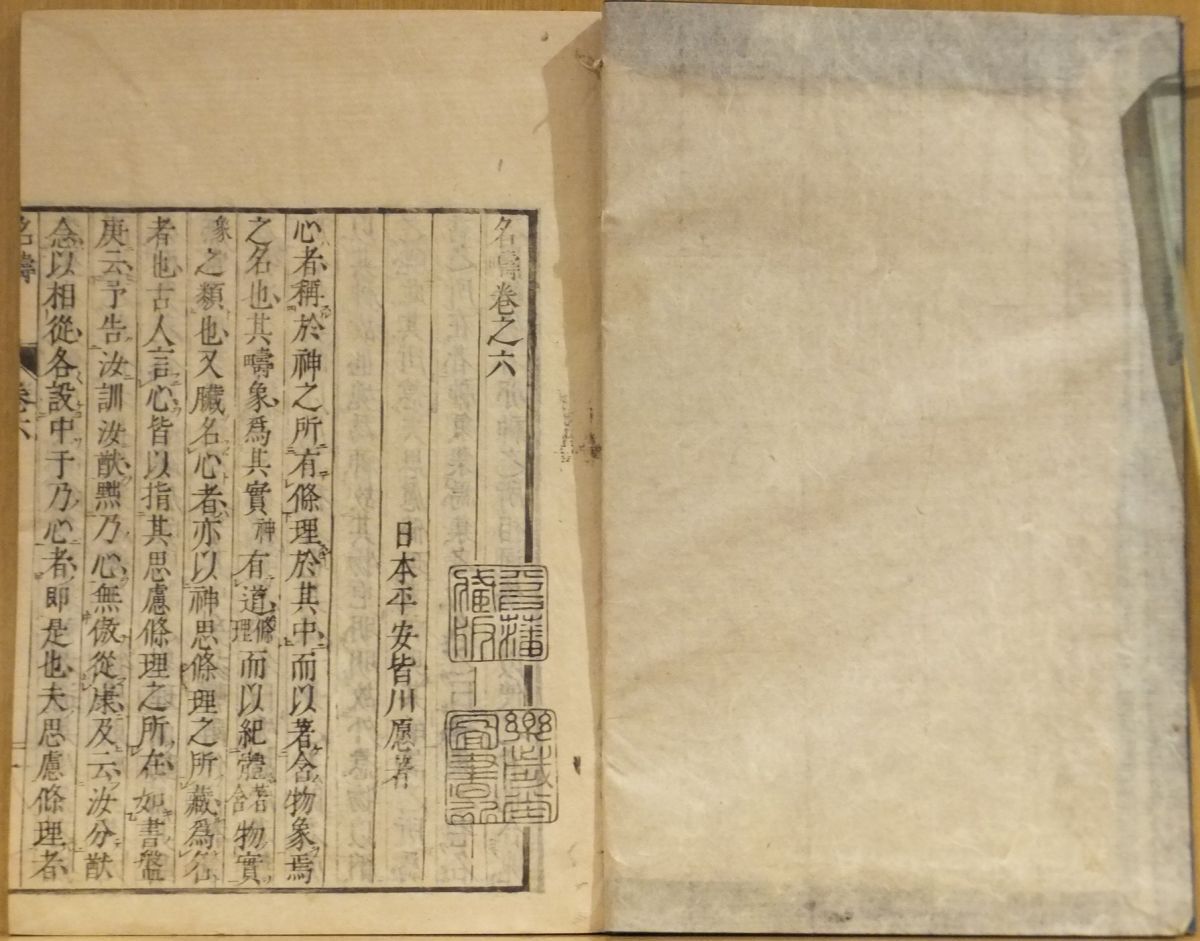 名疇卷之六
日本平安皆川愿著
心者稱於神之所有條理於其中而以著含物象焉
之名也其疇象爲其實神有道條理而以紀體著含物實
象之類也又臟名心者亦以神思條理之所藏爲名
者也古人言心皆以指其思慮條理之所在如書盤
庚云予告汝訓汝猷黜乃心無傲從康及云汝分猷
念以相從各設中于乃心者即是也夫思慮條理者
名疇
卷六
藏版